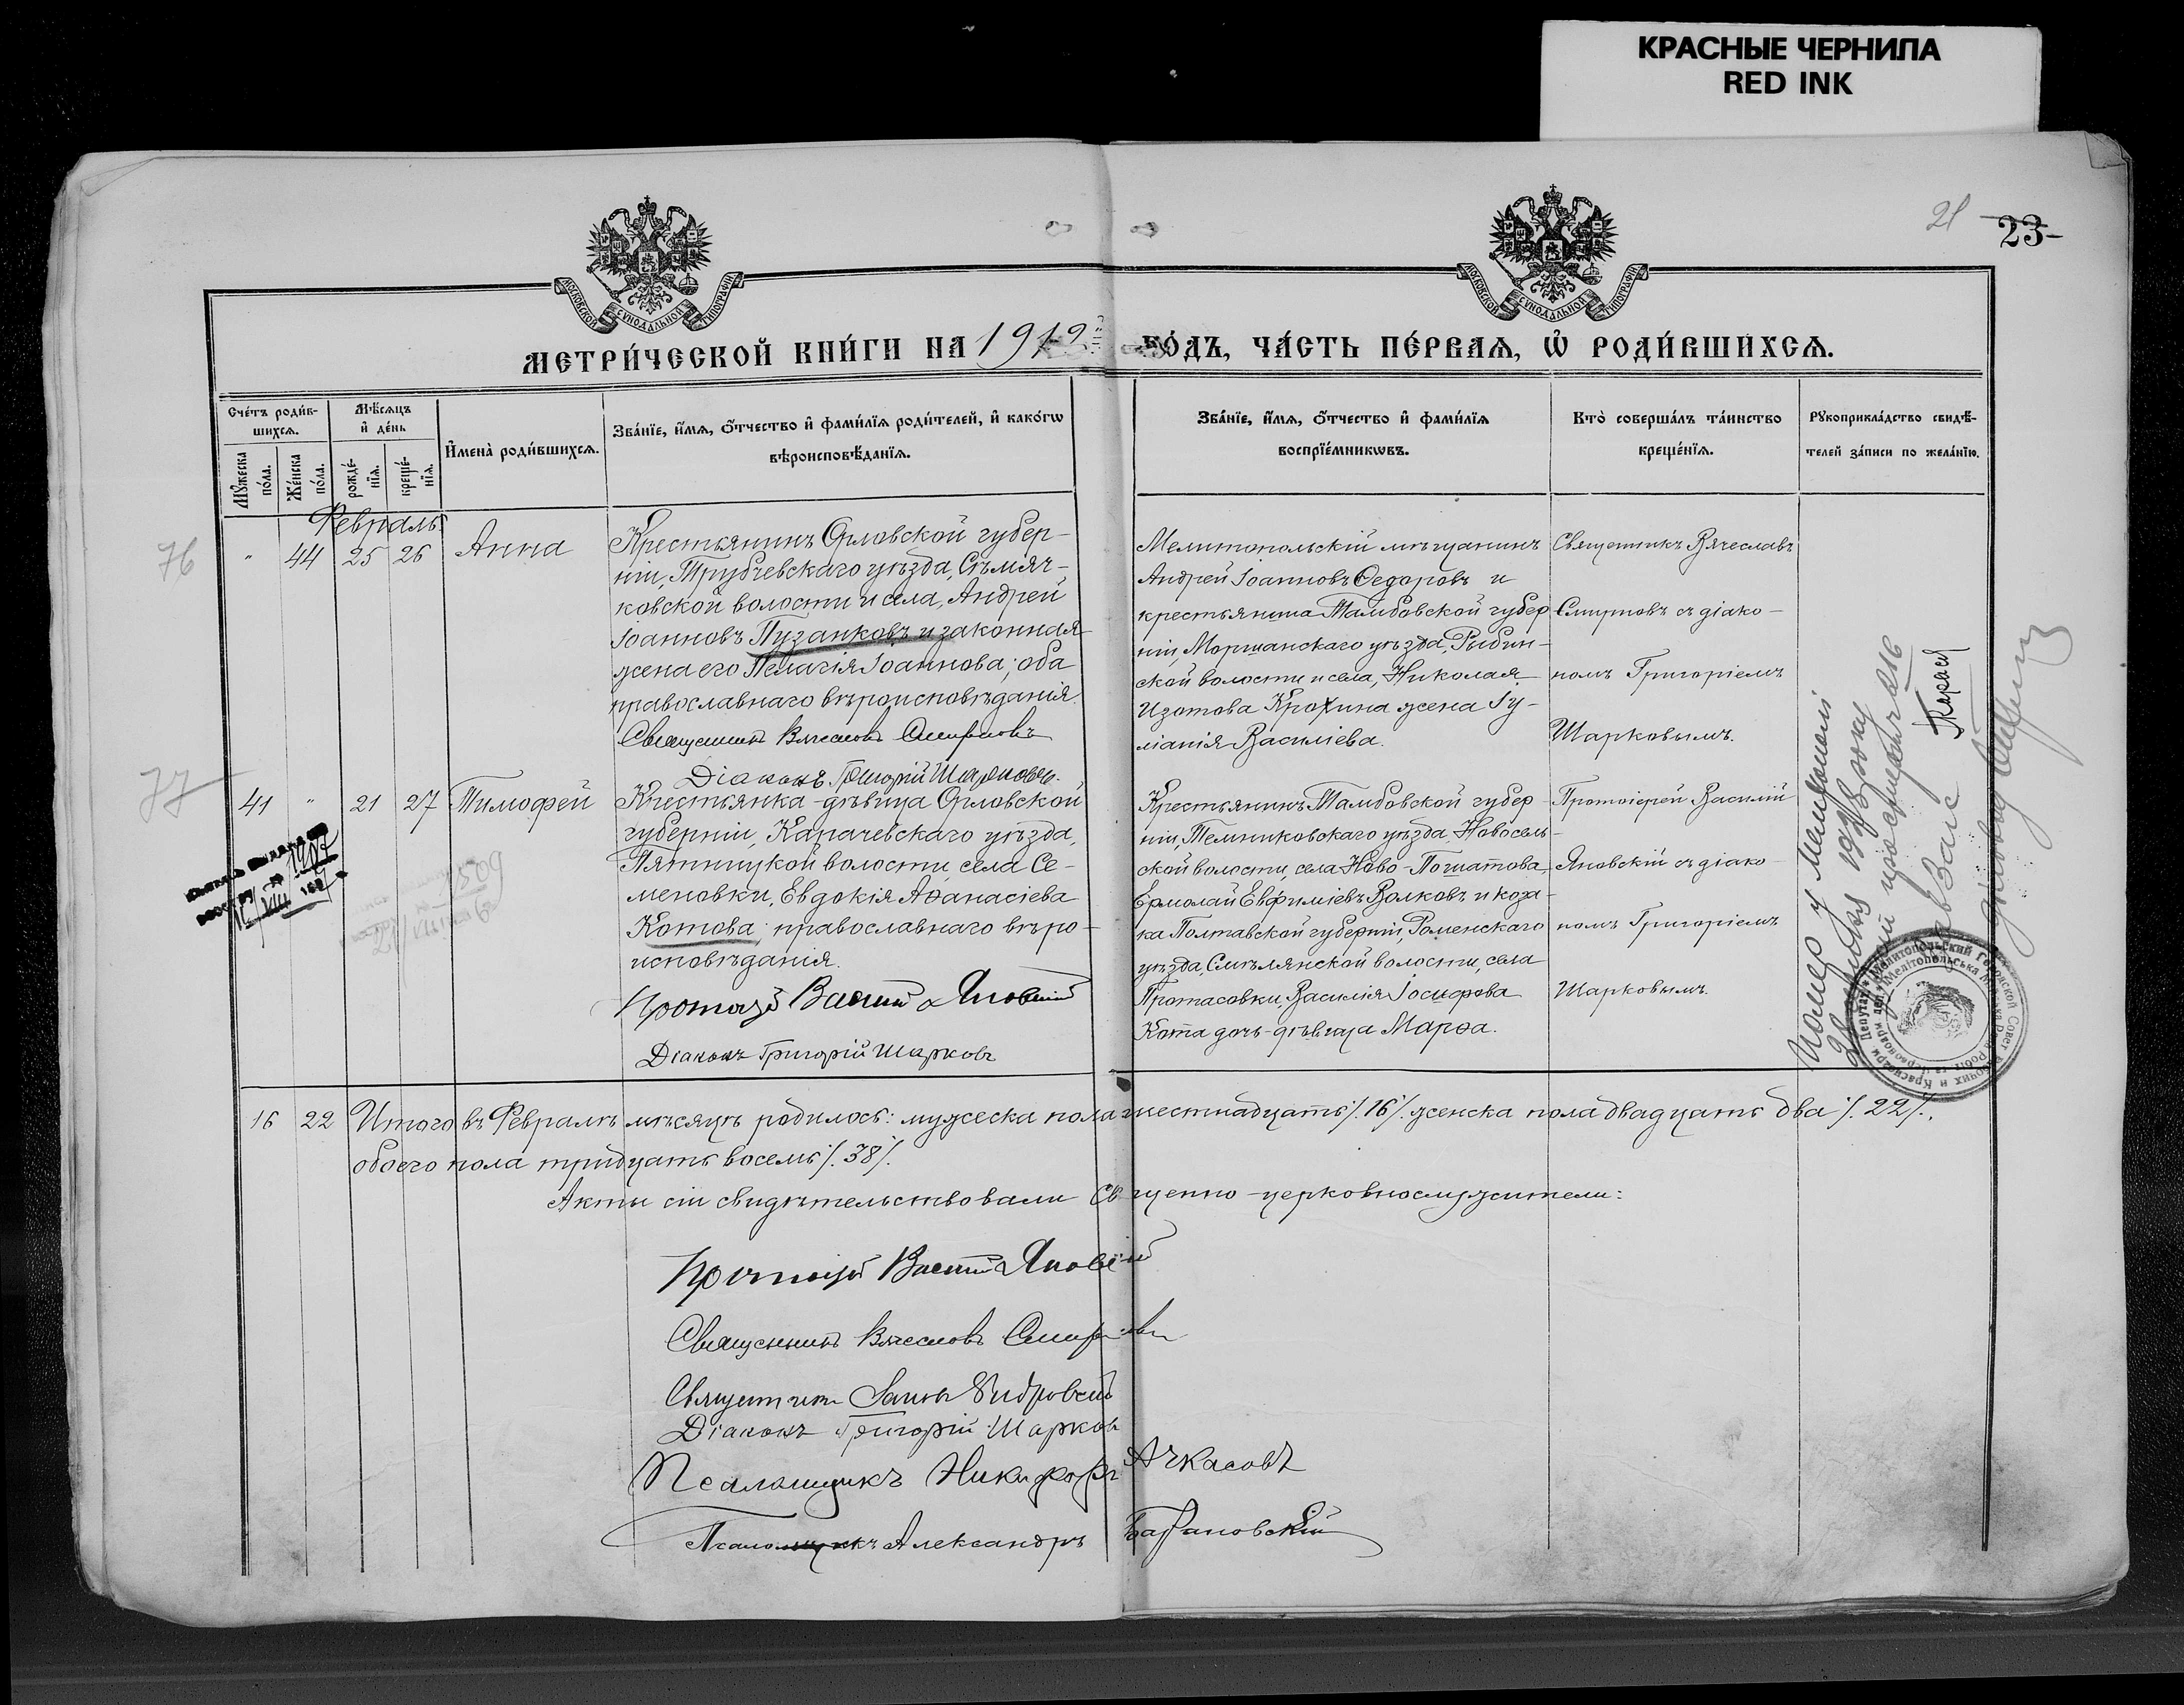 КРАСНЫЕ ЧЕРНИЛА
RED INK
21 23
МОСКОВСКОЙ СѴНОДАЛЬНОЙ ТИПОГРАФІИ
МОСКОВСКОЙ СѴНОДАЛЬНОЙ ТИПОГРАФІИ
МЕТРИ́ЧЕСКОЙ КНИ́ГИ НА 1912 ГО́ДЪ, ЧА́СТЬ ПЕ́РВАѦ, Ѡ҆ РОДИ́ВШИХСѦ.
Сче́тъ роди́в-
шихсѧ.
Мꙋ́жеска по́ла.
Же́нска по́ла.
Мѣ́сѧцъ
и҆ де́нь
рожде́-
нїѧ.
креще́-
нїѧ.
И҆мена̀ роди́вшихсѧ.
Зва́нїе, и҆́мѧ, ѻ҆́тчество и҆ фами́лїѧ роди́телей, и҆ како́гѡ
вѣроисповѣ́данїѧ.
Зва́нїе, и҆́мѧ, ѻ҆́тчество и҆ фами́лїѧ
воспрїе́мникѡвъ.
Кто̀ соверша́лъ та́инство
креще́нїѧ.
Рꙋкоприкла́дство свидѣ́-
телей за́писи по жела́нїю.
Февраль
76 " 44 25 26 Анна
Крестьянинъ Орловской губер-
ніи, Трубчевскаго уѣзда, Сѣмяч-
ковской волости и села, Андрей
Іоанновъ Пузанковъ и законная
жена его Пелагія Іоаннова; оба
православнаго вѣроисповѣданія.
Священникъ Вячеславъ Смирновъ
Діаконъ Григорій Шарковъ.
Мелитопольскій мѣщанинъ
Андрей Іоанновъ Ѳедоровъ и
крестьянина Тамбовской губер
ніи, Моршанскаго уѣзда, Рыбин-
ской волости и села, Николая
Изотова Крохина жена Іу-
ліанія Василіева.
Священникъ Вячеславъ
Смирновъ съ діако-
номъ Григоріемъ
Шарковымъ.
77 41 " 21 27 Тимофей
Крестьянка-дѣвица Орловской
губерніи, Карачевскаго уѣзда,
Пятницкой волости, села Се-
меновки, Евдокія Аѳанасіева
Котова; православнаго вѣро-
исповѣданія.
Протоіерей Василій Яновскій
Діаконъ Григорій Шарковъ
Крестьянинъ Тамбовской губер
ніи, Темниковскаго уѣзда, Новосель-
ской волости, села Ново-Пошатова,
Ермолай Евфиміевъ Волковъ и коза-
ка Полтавской губерніи, Роменскаго
уѣзда, Смѣлянской волости, села
Протасовки, Василія Іосифова
Кота дочь-дѣвица Марѳа.
Протоіерей Василій
Яновскій съ діако-
номъ Григоріемъ
Шарковымъ.
16 22 Итого въ Февралѣ мѣсяцѣ родилось: мужеска пола шестнадцать /. 16 /. женска пола двадцать два /. 22 /.,
обоего пола тридцать восемь /. 38 /.
Акты сіи свидѣтельствовали Священно-церковнослужители:
Протоіерей Василій Яновскій
Священникъ Вячеславъ Смирновъ
Священникъ
Діаконъ Григорій Шарковъ
Псаломщикъ Никифоръ Ачкасовъ
Псаломщикъ Александръ Барановскій